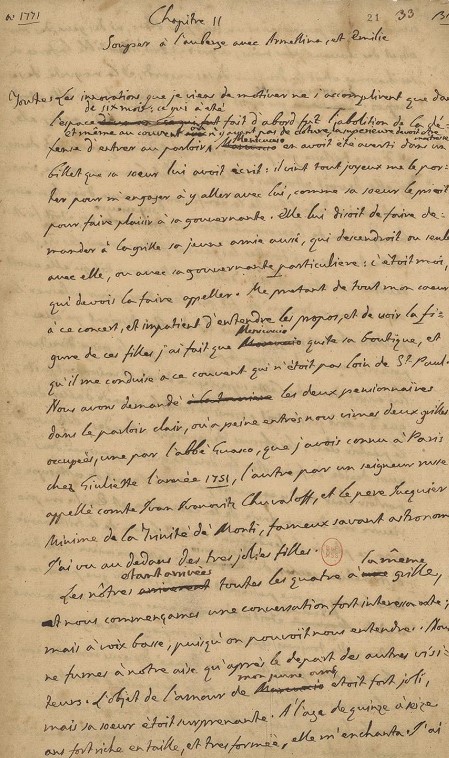 an 1771
Chapitre II
21 33
Souper à l'auberge avec Armelline, et Emilie
Toutes les innovations que je viens de motiver ne s'accomplirent que dans
de six mois : ce qui a été
l'espace fait d'abord fut l'abolition de la dé-
et même au couvent où n'y ayant pas de cloture, la superieure devoit être
maitresse
fense d'entrer au parloir. Menicuccio en avoit été averti dans un
billet que sa soeur lui avoit ecrit : il vint tout joyeux me le por-
ter pour m'engager à y aller avec lui, comme sa soeur le prioit
pour faire plaisir à sa gouvernante. Elle lui disoit de faire de-
mander à la grille sa jeune amie aussi, qui descendroit ou seule
avec elle, ou avec sa gouvernante particuliere : c'étoit moi,
qui devois la faire appeller. Me pretant de tout mon coeur
à ce concert, et impatient d'entendre les propos, et de voir la fi-
gure de ces filles j'ai fait que Menicuccio quite sa boutique, et
qu'il me conduise a ce couvent qui n'étoit pas loin de St Paul.
Nous avons demandé les deux pensionnaires
dans le parloir clair, où a peine entrés nous vimes deux grilles
occupées, une par l'abbé Guasco, que j'avois connu à Paris
chez Giuliette l'année 1751, l'autre par un seigneur russe
appellé comte Ivan Ivanovitz Chuvaloff, et le pere Jacquier
Minime de la Trinité de Monti, fameux savant astronome
J'ai vu au dedans des tres jolies filles.
etant arrivées la même
Les nôtres toutes les quatre à grille,
nous commençames une conversation fort interessante ;
mais à voix basse, puisqu'on pouvoit nous entendre. Nous
ne fumes à notre aise qu'après le depart des autres visi-
mon jeune ami
teurs. L'objet de l'amour de etoit fort joli,
mais sa soeur étoit surprenante. A l'age de quinze à seize
ans fort riche en taille, et tres formée, elle m'enchanta. J'ai